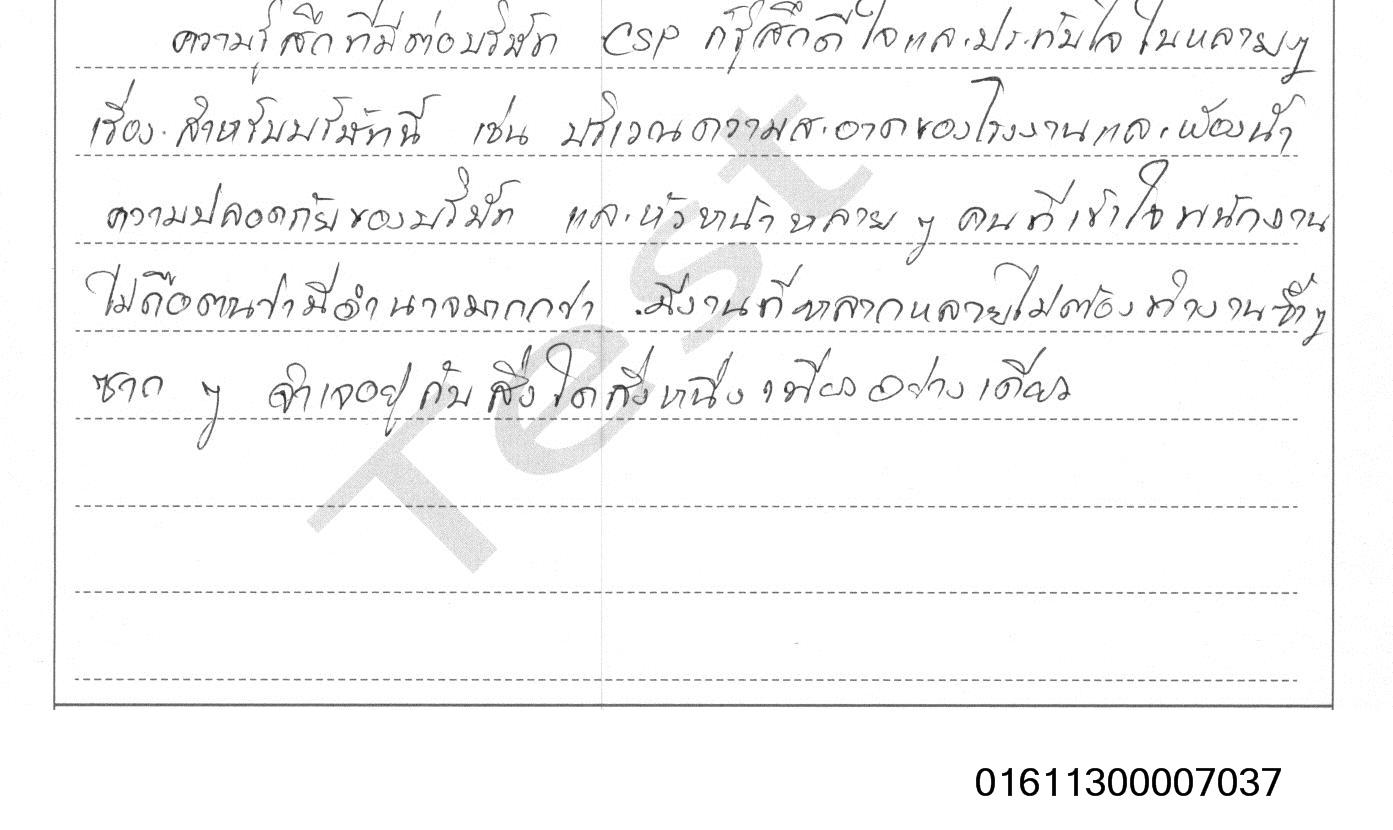 ความรู้สึกที่มีต่อบริษัท CSP ก็รู้สึกดีใจและประทับใจในหลายๆ
เรื่อง สำหรับบริษัทนี้ เช่น บริเวณความสะอาดของโรงงานและห้องน้ำ
ความปลอดภัยของบริษัท และหัวหน้าหลาย ๆ คนที่เข้าใจพนักงาน
ไม่ถือตนว่ามีอำนาจมากกว่า มีงานที่หลากหลายไม่ต้องทำงานซ้ำๆ
ซาก ๆ จำเจอยู่กับสิ่งใดสิ่งหนึ่งเพียงอย่างเดียว
Test
01611300007037